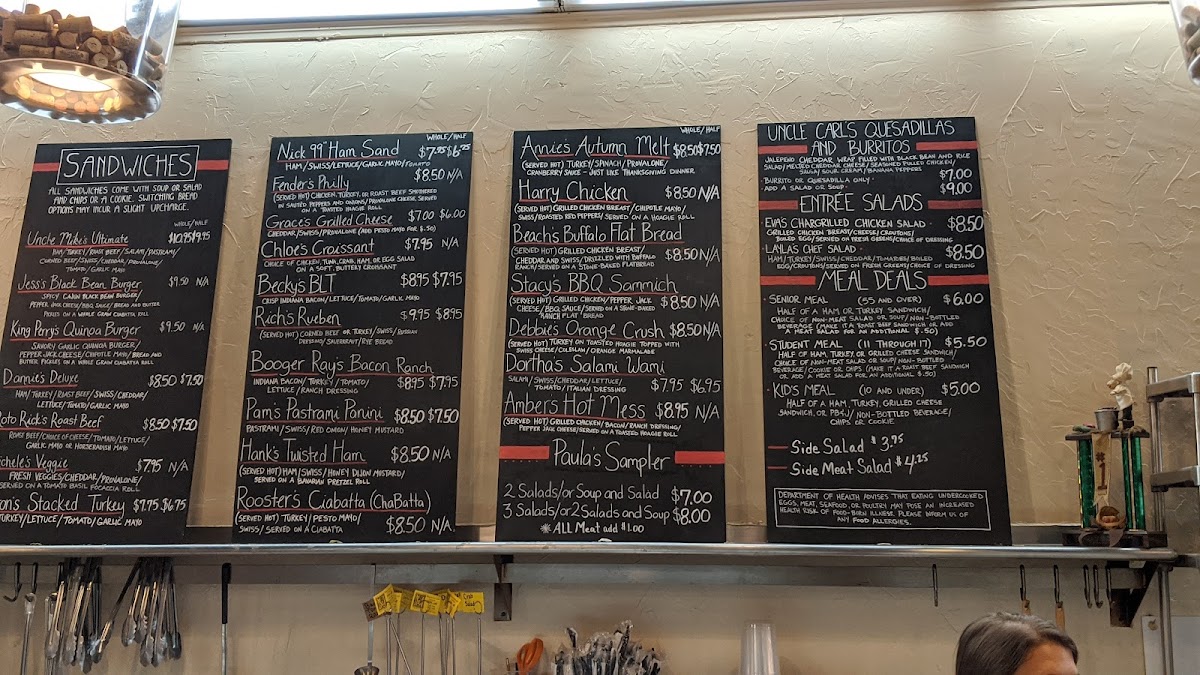 SANDWICHES
ALL SANDWICHES COME WITH SOUP OR SALAD
AND CHIPS OR A COOKIE. SWITCHING BREAD
OPTIONS MAY INCUR A SLIGHT UPCHARGE.
WHOLE/HALF
Uncle Mike's Ultimate $10.95 $9.45
HAM/TURKEY/ROAST BEEF/SALAMI/PASTRAMI/
CORNED BEEF/SWISS/CHEDDAR/PROVALONE/
TOMATO/GARLIC MAYO
Jess's Black Bean Burger $9.50 N/A
SPICY CAJUN BLACK BEAN BURGER/
PEPPER JACK CHEESE/BBQ SAUCE/BREAD AND BUTTER
PICKLES ON A WHOLE GRAIN CIABATTA ROLL
King Perry's Quinoa Burger $9.50 N/A
SAVORY GARLIC QUINOA BURGER/
PEPPER JACK CHEESE/CHIPOTLE MAYO/BREAD AND
BUTTER PICKLES ON A WHOLE GRAIN CIABATTA ROLL
Dannie's Deluxe $8.50 $7.50
HAM/TURKEY/ROAST BEEF/SWISS/CHEDDAR/
LETTUCE/TOMATO/GARLIC MAYO
oto Rick's Roast Beef $8.50 $7.50
ROAST BEEF/CHOICE OF CHEESE/TOMATO/LETTUCE/
GARLIC MAYO OR HORSERADISH MAYO
ichele's Veggie $7.95 N/A
FRESH VEGGIES/CHEDDAR/PROVALONE/
SERVED ON A TOMATO BASIL FOCACCIA ROLL
on's Stacked Turkey $7.75 $6.75
TURKEY/LETTUCE/TOMATO/GARLIC MAYO
WHOLE/HALF
Nick 99¢ Ham Sand $7.75 $6.75
HAM/SWISS/LETTUCE/GARLIC MAYO/TOMATO
Fender's Philly $8.50 N/A
(SERVED HOT) CHICKEN, TURKEY, OR ROAST BEEF SMOTHERED
IN SAUTEED PEPPERS AND ONIONS/PROVALONE CHEESE, SERVED
ON A TOASTED HOAGIE ROLL
Grace's Grilled Cheese $7.00 $6.00
CHEDDAR/SWISS/PROVALONE (ADD PESTO MAYO FOR $.50)
Chloe's Croissant $7.95 N/A
CHOICE OF CHICKEN, TUNA, CRAB, HAM, OR EGG SALAD
ON A SOFT, BUTTERY CROISSANT
Becky's BLT $8.95 $7.95
CRISP INDIANA BACON/LETTUCE/TOMATO/GARLIC MAYO
Rich's Rueben $9.95 $8.95
(SERVED HOT) CORNED BEEF OR TURKEY/SWISS/RUSSIAN
DRESSING/SAUERKRAUT/RYE BREAD
Booger Ray's Bacon Ranch
INDIANA BACON/TURKEY/TOMATO/ $8.95 $7.95
LETTUCE/RANCH DRESSING
Pam's Pastrami Panini $8.50 $7.50
PASTRAMI/SWISS/RED ONION/HONEY MUSTARD
Hank's Twisted Ham $8.50 N/A
(SERVED HOT) HAM/SWISS/HONEY DIJON MUSTARD/
SERVED ON A BAVARIAN PRETZEL ROLL
Rooster's Ciabatta (ChaBatta)
(SERVED HOT) TURKEY/PESTO MAYO/
SWISS/SERVED ON A CIABATTA $8.50 N/A
WHOLE/HALF
Annie's Autumn Melt $8.50 $7.50
(SERVED HOT) TURKEY/SPINACH/PROVALONE/
CRANBERRY SAUCE - JUST LIKE THANKSGIVING DINNER
Harry Chicken $8.50 N/A
(SERVED HOT) GRILLED CHICKEN BREAST/CHIPOTLE MAYO/
SWISS/ROASTED RED PEPPERS/SERVED ON A HOAGIE ROLL
Beach's Buffalo Flat Bread
(SERVED HOT) GRILLED CHICKEN BREAST/
CHEDDAR AND SWISS/DRIZZLED WITH BUFFALO $8.50 N/A
RANCH/SERVED ON A STONE-BAKED FLATBREAD
Stacy's BBQ Sammich
(SERVED HOT) GRILLED CHICKEN/PEPPER JACK $8.50 N/A
CHEESE/BBQ SAUCE/SERVED ON A STONE-BAKED
RANCH FLAT BREAD
Debbie's Orange Crush $8.50 N/A
(SERVED HOT) TURKEY ON TOASTED HOAGIE TOPPED WITH
SWISS CHEESE/COLESLAW/ORANGE MARMALADE
Dortha's Salami Wami
SALAMI/SWISS/CHEDDAR/LETTUCE/ $7.95 $6.95
TOMATO/ITALIAN DRESSING
Amber's Hot Mess $8.95 N/A
(SERVED HOT) GRILLED CHICKEN/BACON/RANCH DRESSING/
PEPPER JACK CHEESE/SERVED ON A TOASTED HOAGIE ROLL
Paula's Sampler
2 Salads/or Soup and Salad $7.00
3 Salads/or 2 Salads and Soup $8.00
* ALL Meat add $1.00
UNCLE CARL'S QUESADILLAS
AND BURRITOS
JALEPENO CHEDDAR WRAP FILLED WITH BLACK BEAN AND RICE
SALAD/MELTED CHEDDAR CHEESE/SEASONED PULLED CHICKEN/
SALSA/SOUR CREAM/BANANA PEPPERS
BURRITO OR QUESADILLA ONLY · $7.00
ADD A SALAD OR SOUP · $9.00
ENTRÉE SALADS
EVA'S CHARGRILLED CHICKEN SALAD $8.50
GRILLED CHICKEN BREAST/CHEESE/CROUTONS/
BOILED EGG/SERVED ON FRESH GREENS/CHOICE OF DRESSING
LAYLA'S CHEF SALAD · $8.50
HAM/TURKEY/SWISS/CHEDDAR/TOMATOES/BOILED
EGG/CROUTONS/SERVED ON FRESH GREENS/CHOICE OF DRESSING
MEAL DEALS
· SENIOR MEAL (55 AND OVER) $6.00
HALF OF A HAM OR TURKEY SANDWICH/
CHOICE OF NON-MEAT SALAD OR SOUP/NON-BOTTLED
BEVERAGE (MAKE IT A ROAST BEEF SANDWICH OR ADD
A MEAT SALAD FOR AN ADDITIONAL $.50)
· STUDENT MEAL (11 THROUGH 17) $5.50
HALF OF HAM, TURKEY, OR GRILLED CHEESE SANDWICH/
CHOICE OF NON-MEAT SALAD OR SOUP/NON-BOTTLED
BEVERAGE/COOKIE OR CHIPS (MAKE IT A ROAST BEEF SANDWICH
OR ADD A MEAT SALAD FOR AN ADDITIONAL $.50)
· KID'S MEAL (10 AND UNDER) $5.00
HALF OF A HAM, TURKEY, GRILLED CHEESE
SANDWICH, OR PB&J/NON-BOTTLED BEVERAGE/
CHIPS OR COOKIE
Side Salad $3.95
Side Meat Salad $4.25
DEPARTMENT OF HEALTH ADVISES THAT EATING UNDERCOOKED
EGGS, MEAT, SEAFOOD, OR POULTRY MAY POSE AN INCREASED
HEALTH RISK OF FOOD-BORN ILLNESS. PLEASE INFORM US OF
ANY FOOD ALLERGIES.
#1